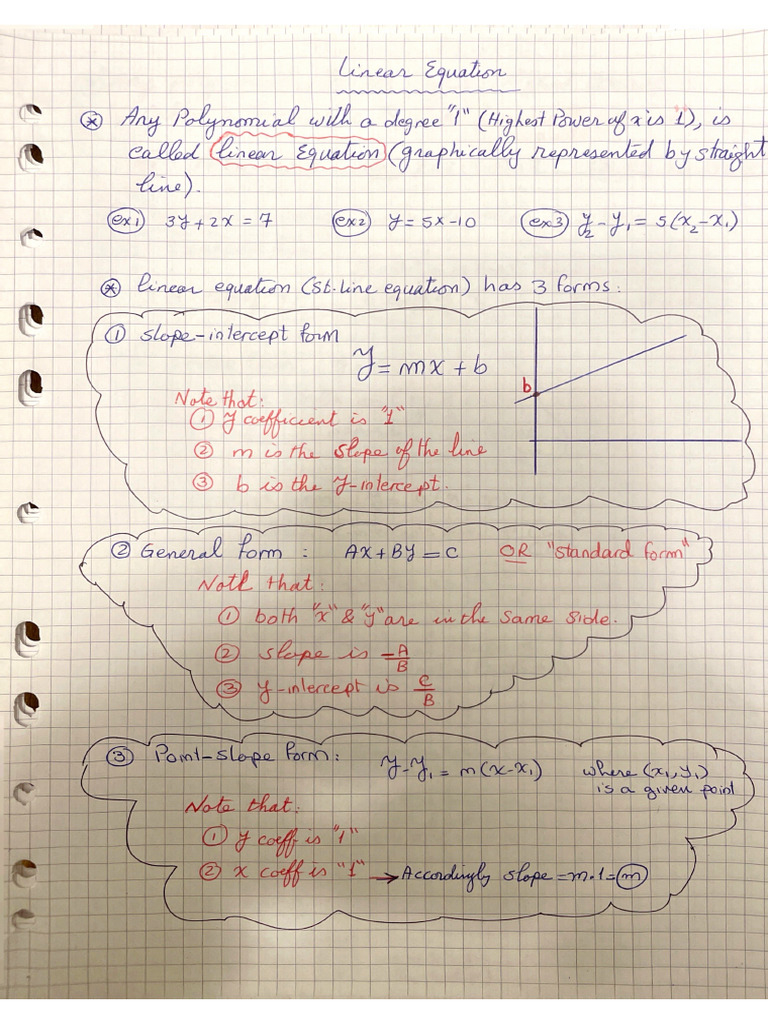 Linear Equation
⊛ Any Polynomial with a degree "1" (Highest Power of x is 1), is
called linear Equation (graphically represented by straight
line).
ex1) 3y + 2x = 7 ex2) y = 5x - 10 ex3) y₂ - y₁ = 5(x₂ - x₁)
⊛ linear equation (St. line equation) has 3 forms:
① slope-intercept form
y = mx + b
b
Note that:
① y coefficient is "1"
② m is the slope of the line
③ b is the y-intercept.
② General form : Ax + By = C OR "standard form"
Note that:
① both "x" & "y" are in the same side.
② slope is -A/B
③ y-intercept is c/B
③ Point-slope form: y - y₁ = m(x - x₁) where (x₁, y₁)
is a given point
Note that:
① y coeff is "1"
② x coeff is "1" → Accordingly slope = m·1 = m